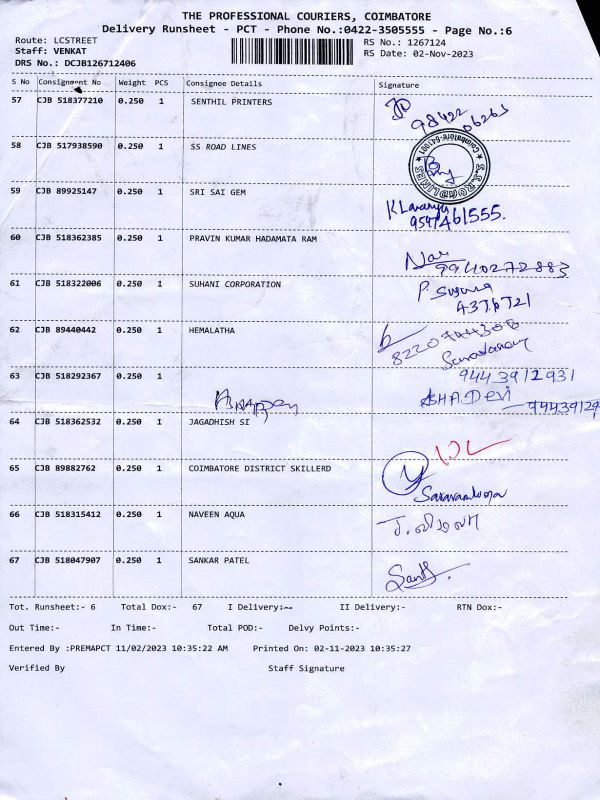 THE PROFESSIONAL COURIERS, COIMBATORE
Delivery Runsheet - PCT - Phone No.:0422-3505555 - Page No.:6
Route: LCSTREET
RS No.: 1267124
Staff: VENKAT
RS Date: 02-Nov-2023
DRS No.: DCJB126712406
S No Consignment No Weight PCS Consignee Details Signature
57 CJB 518377210 0.250 1 SENTHIL PRINTERS
98422 06263
58 CJB 517938590 0.250 1 SS ROAD LINES
S.S.ROADLINES Coimbatore-641001
59 CJB 89925147 0.250 1 SRI SAI GEM
K Lavanya
60 CJB 518362385 0.250 1 PRAVIN KUMAR HADAMATA RAM
9940272883
61 CJB 518322006 0.250 1 SUHANI CORPORATION
62 CJB 89440442 0.250 1 HEMALATHA
63 CJB 518292367 0.250 1
9443912931
ASHADevi 94439129
64 CJB 518362532 0.250 1 JAGADHISH SI
65 CJB 89882762 0.250 1 COIMBATORE DISTRICT SKILLERD
66 CJB 518315412 0.250 1 NAVEEN AQUA
67 CJB 518047907 0.250 1 SANKAR PATEL
Tot. Runsheet:- 6 Total Dox:- 67 I Delivery:-- II Delivery:- RTN Dox:-
Out Time:- In Time:- Total POD:- Delvy Points:-
Entered By :PREMAPCT 11/02/2023 10:35:22 AM Printed On: 02-11-2023 10:35:27
Verified By Staff Signature